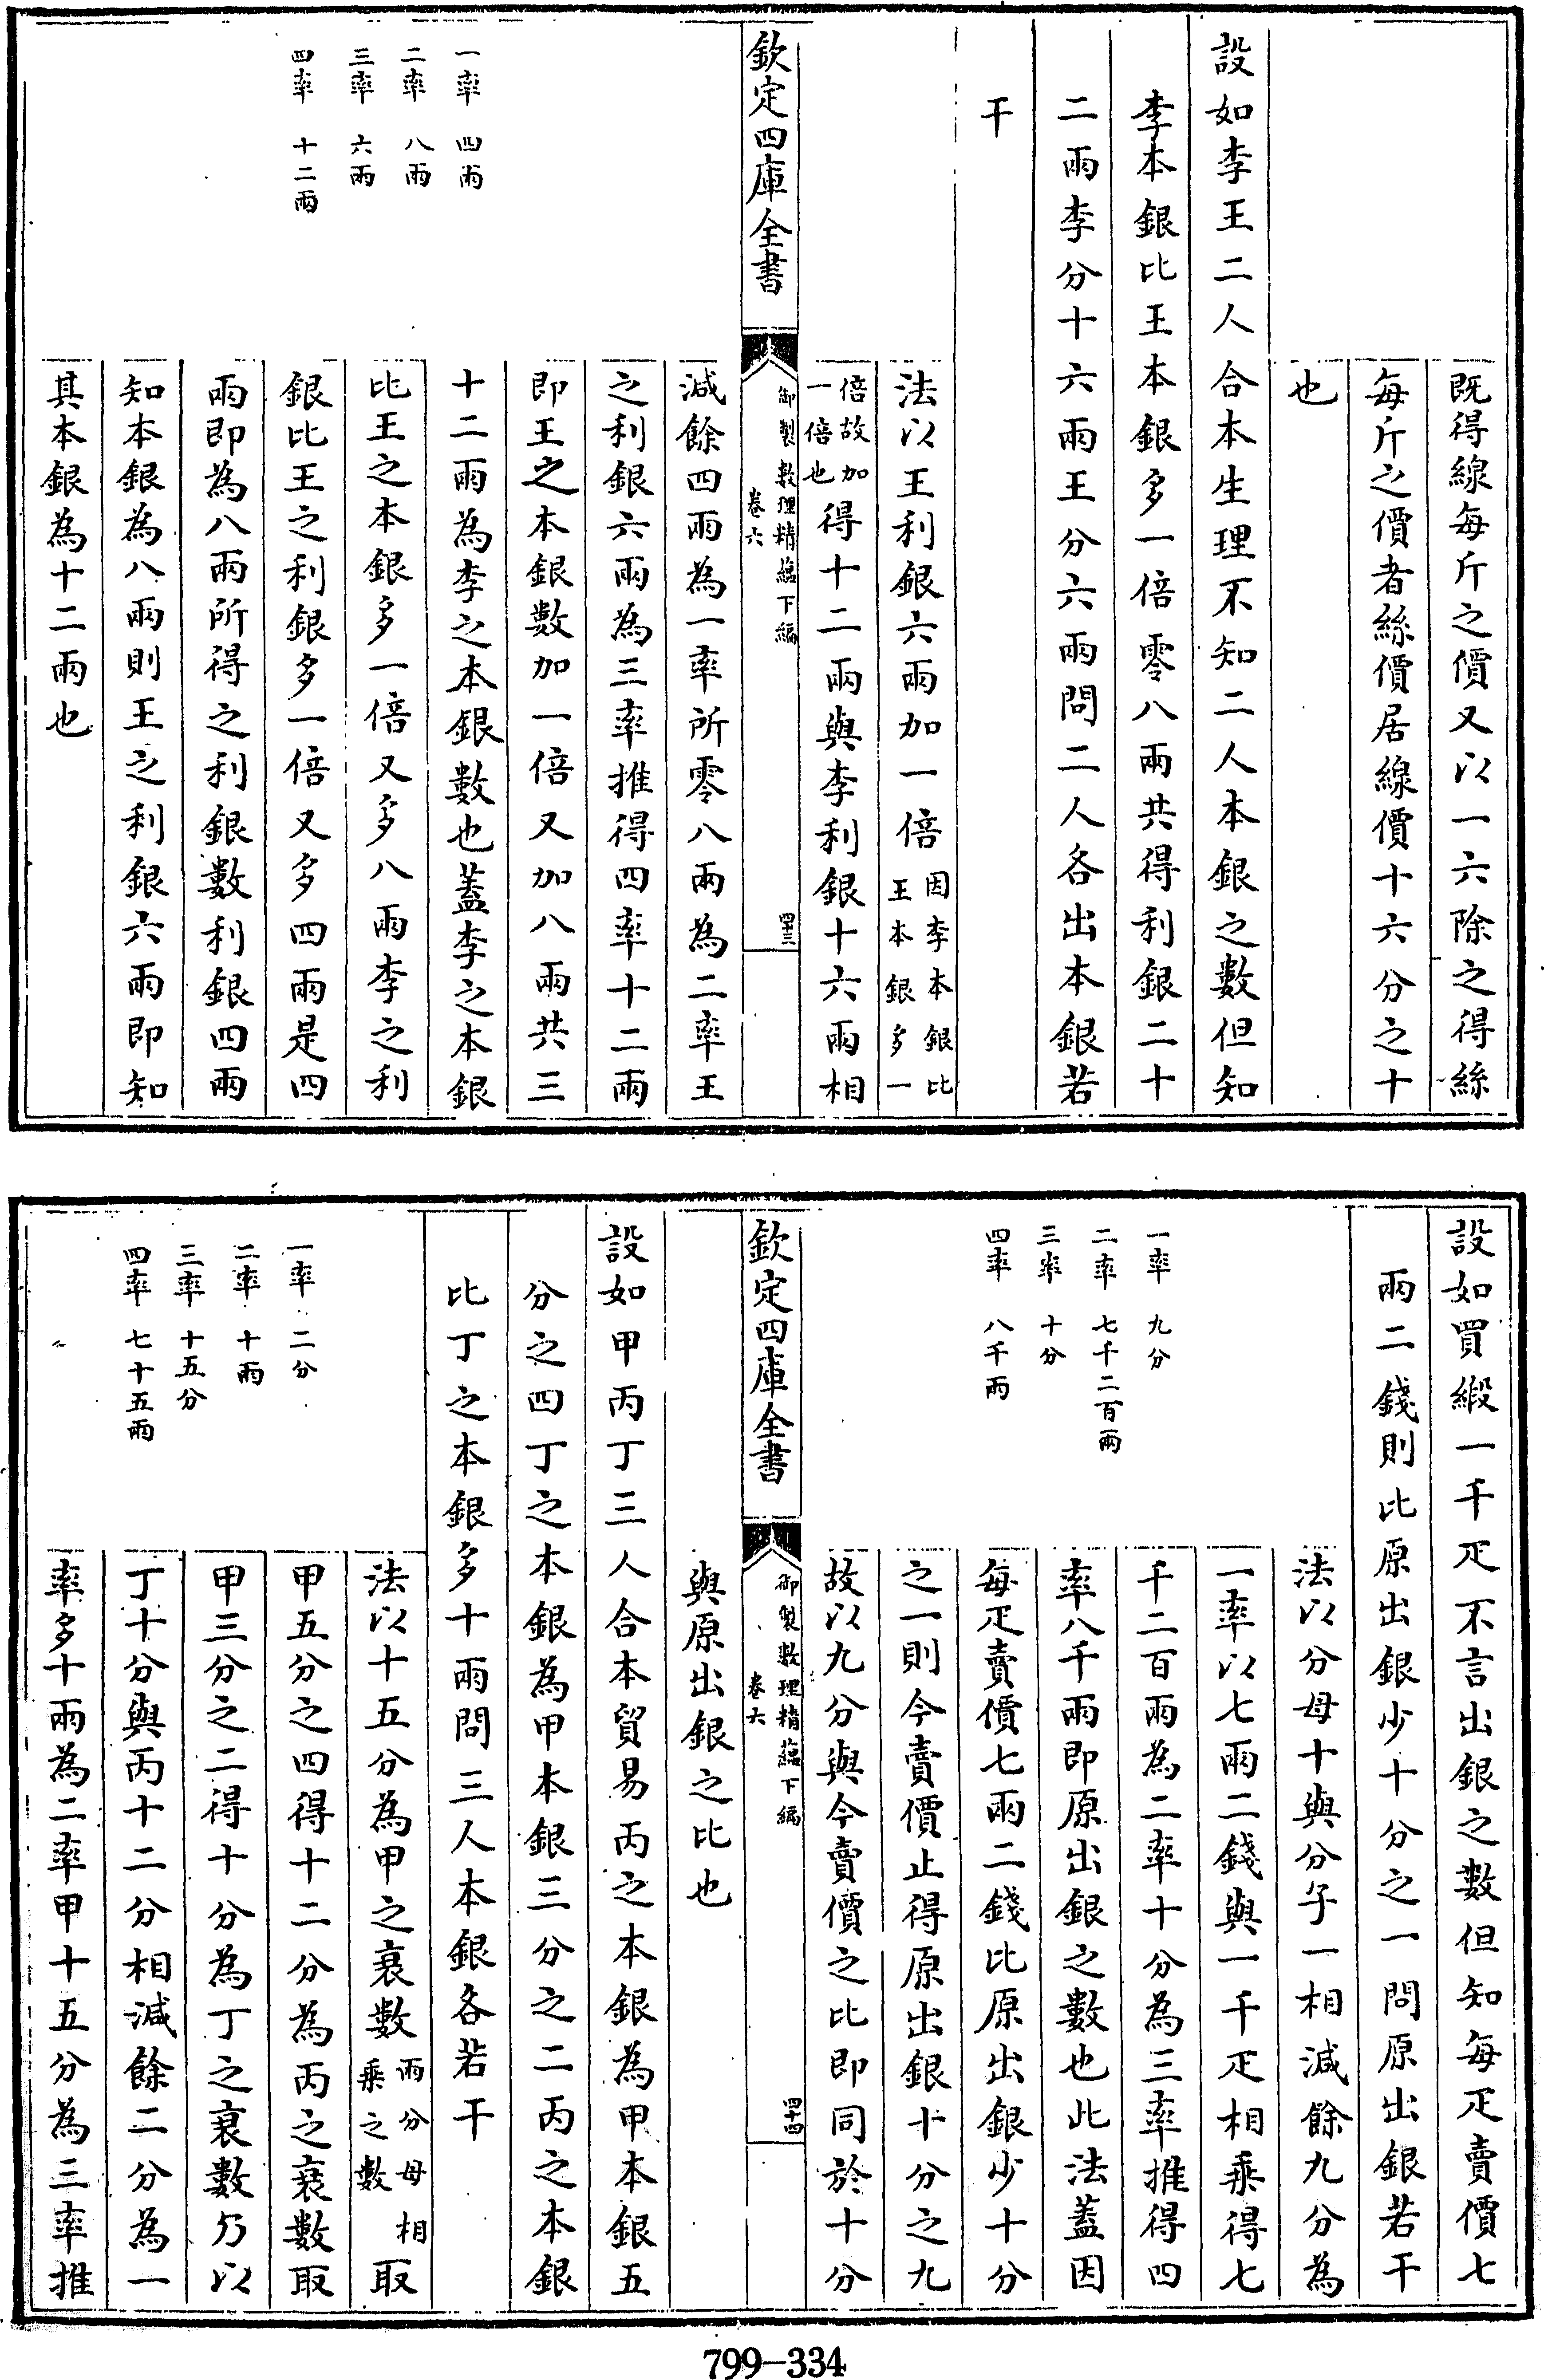 既得線每斤之價又以一六除之得絲
每斤之價者絲價居線價十六分之十
也
設如李王二人合本生理不知二人本銀之數但知
李本銀比王本銀多一倍零八兩共得利銀二十
二兩李分十六兩王分六兩問二人各出本銀若
干
法以王利銀六兩加一倍因李本銀比王本銀多一
倍故加一倍也得十二兩與李利銀十六兩相
欽定四庫全書
御製數理精蘊下編
卷六
四十三
減餘四兩為一率所零八兩為二率王
之利銀六兩為三率推得四率十二兩
即王之本銀數加一倍又加八兩共三
十二兩為李之本銀數也蓋李之本銀
比王之本銀多一倍又多八兩李之利
銀比王之利銀多一倍又多四兩是四
兩即為八兩所得之利銀數利銀四兩
知本銀為八兩則王之利銀六兩即知
其本銀為十二兩也
一率 四兩
二率 八兩
三率 六兩
四率 十二兩
設如買緞一千疋不言出銀之數但知每疋賣價七
兩二錢則比原出銀少十分之一問原出銀若干
法以分母十與分子一相減餘九分為
一率以七兩二錢與一千疋相乘得七
千二百兩為二率十分為三率推得四
率八千兩即原出銀之數也此法蓋因
每疋賣價七兩二錢比原出銀少十分
之一則今賣價止得原出銀十分之九
故以九分與今賣價之比即同於十分
一率 九分
二率 七千二百兩
三率 十分
四率 八千兩
欽定四庫全書
御製數理精蘊下編
卷六
四十四
與原出銀之比也
設如甲丙丁三人合本貿易丙之本銀為甲本銀五
分之四丁之本銀為甲本銀三分之二丙之本銀
比丁之本銀多十兩問三人本銀各若干
法以十五分為甲之衰數兩分母相乘之數取
甲五分之四得十二分為丙之衰數取
甲三分之二得十分為丁之衰數乃以
丁十分與丙十二分相減餘二分為一
率多十兩為二率甲十五分為三率推
一率 二分
二率 十兩
三率 十五分
四率 七十五兩
799-334